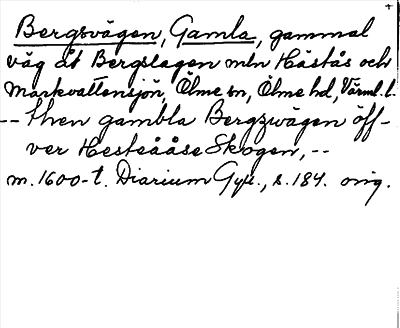 Bergsvägen, Gamla, gammal
väg åt Bergslagen mln Hästås och
Markvattensjön, Ölme sn, Ölme hd, Värml. l.
-- then gambla Bergzwägen öff-
ver Hesteååse Skogen, --
m. 1600-t. Diarium Gyll., s. 184. orig.